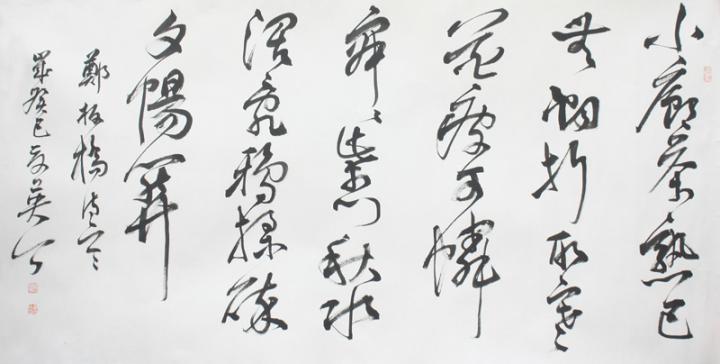 小廊茶熟已
無烟折取寒
花瘦可憐
寂々柴門秋水
濶亂鴉揉碎
夕陽天
鄭板橋詩
歲癸巳